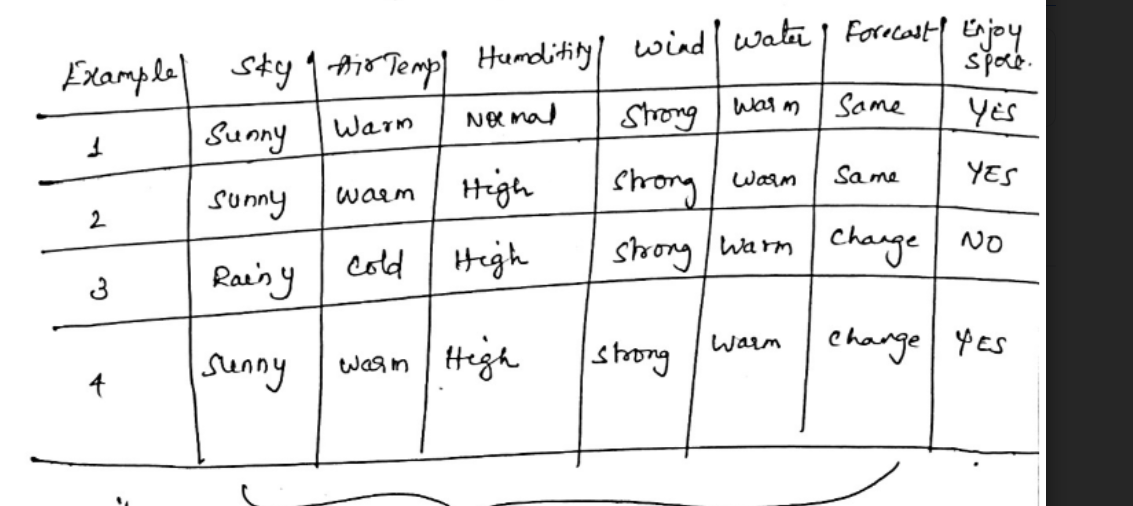 Example Sky Air Temp Humditity Wind Water Forecast Enjoy Spore.
1 Sunny Warm Normal Strong Warm Same YES
2 Sunny Warm High Strong Warm Same YES
3 Rainy Cold High Strong Warm Change NO
4 Sunny Warm High Strong Warm Change YES